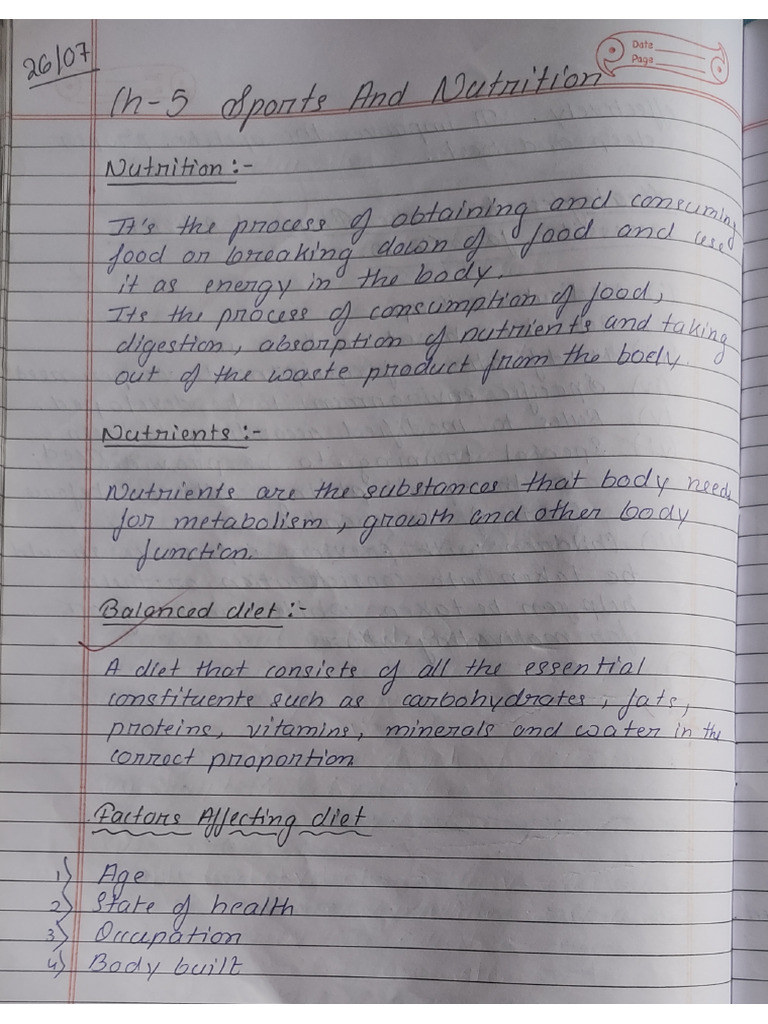 26/07
Date
Page
Ch-5 Sports And Nutrition
Nutrition :-
It's the process of obtaining and consuming
food or breaking down of food and use
it as energy in the body.
Its the process of consumption of food,
digestion, absorption of nutrients and taking
out of the waste product from the body.
Nutrients :-
Nutrients are the substances that body needs
for metabolism, growth and other body
function.
Balanced diet :-
A diet that consists of all the essential
constituents such as carbohydrates, fats,
proteins, vitamins, minerals and water in the
correct proportion
Factors Affecting diet
1) Age
2) State of health
3) Occupation
4) Body built